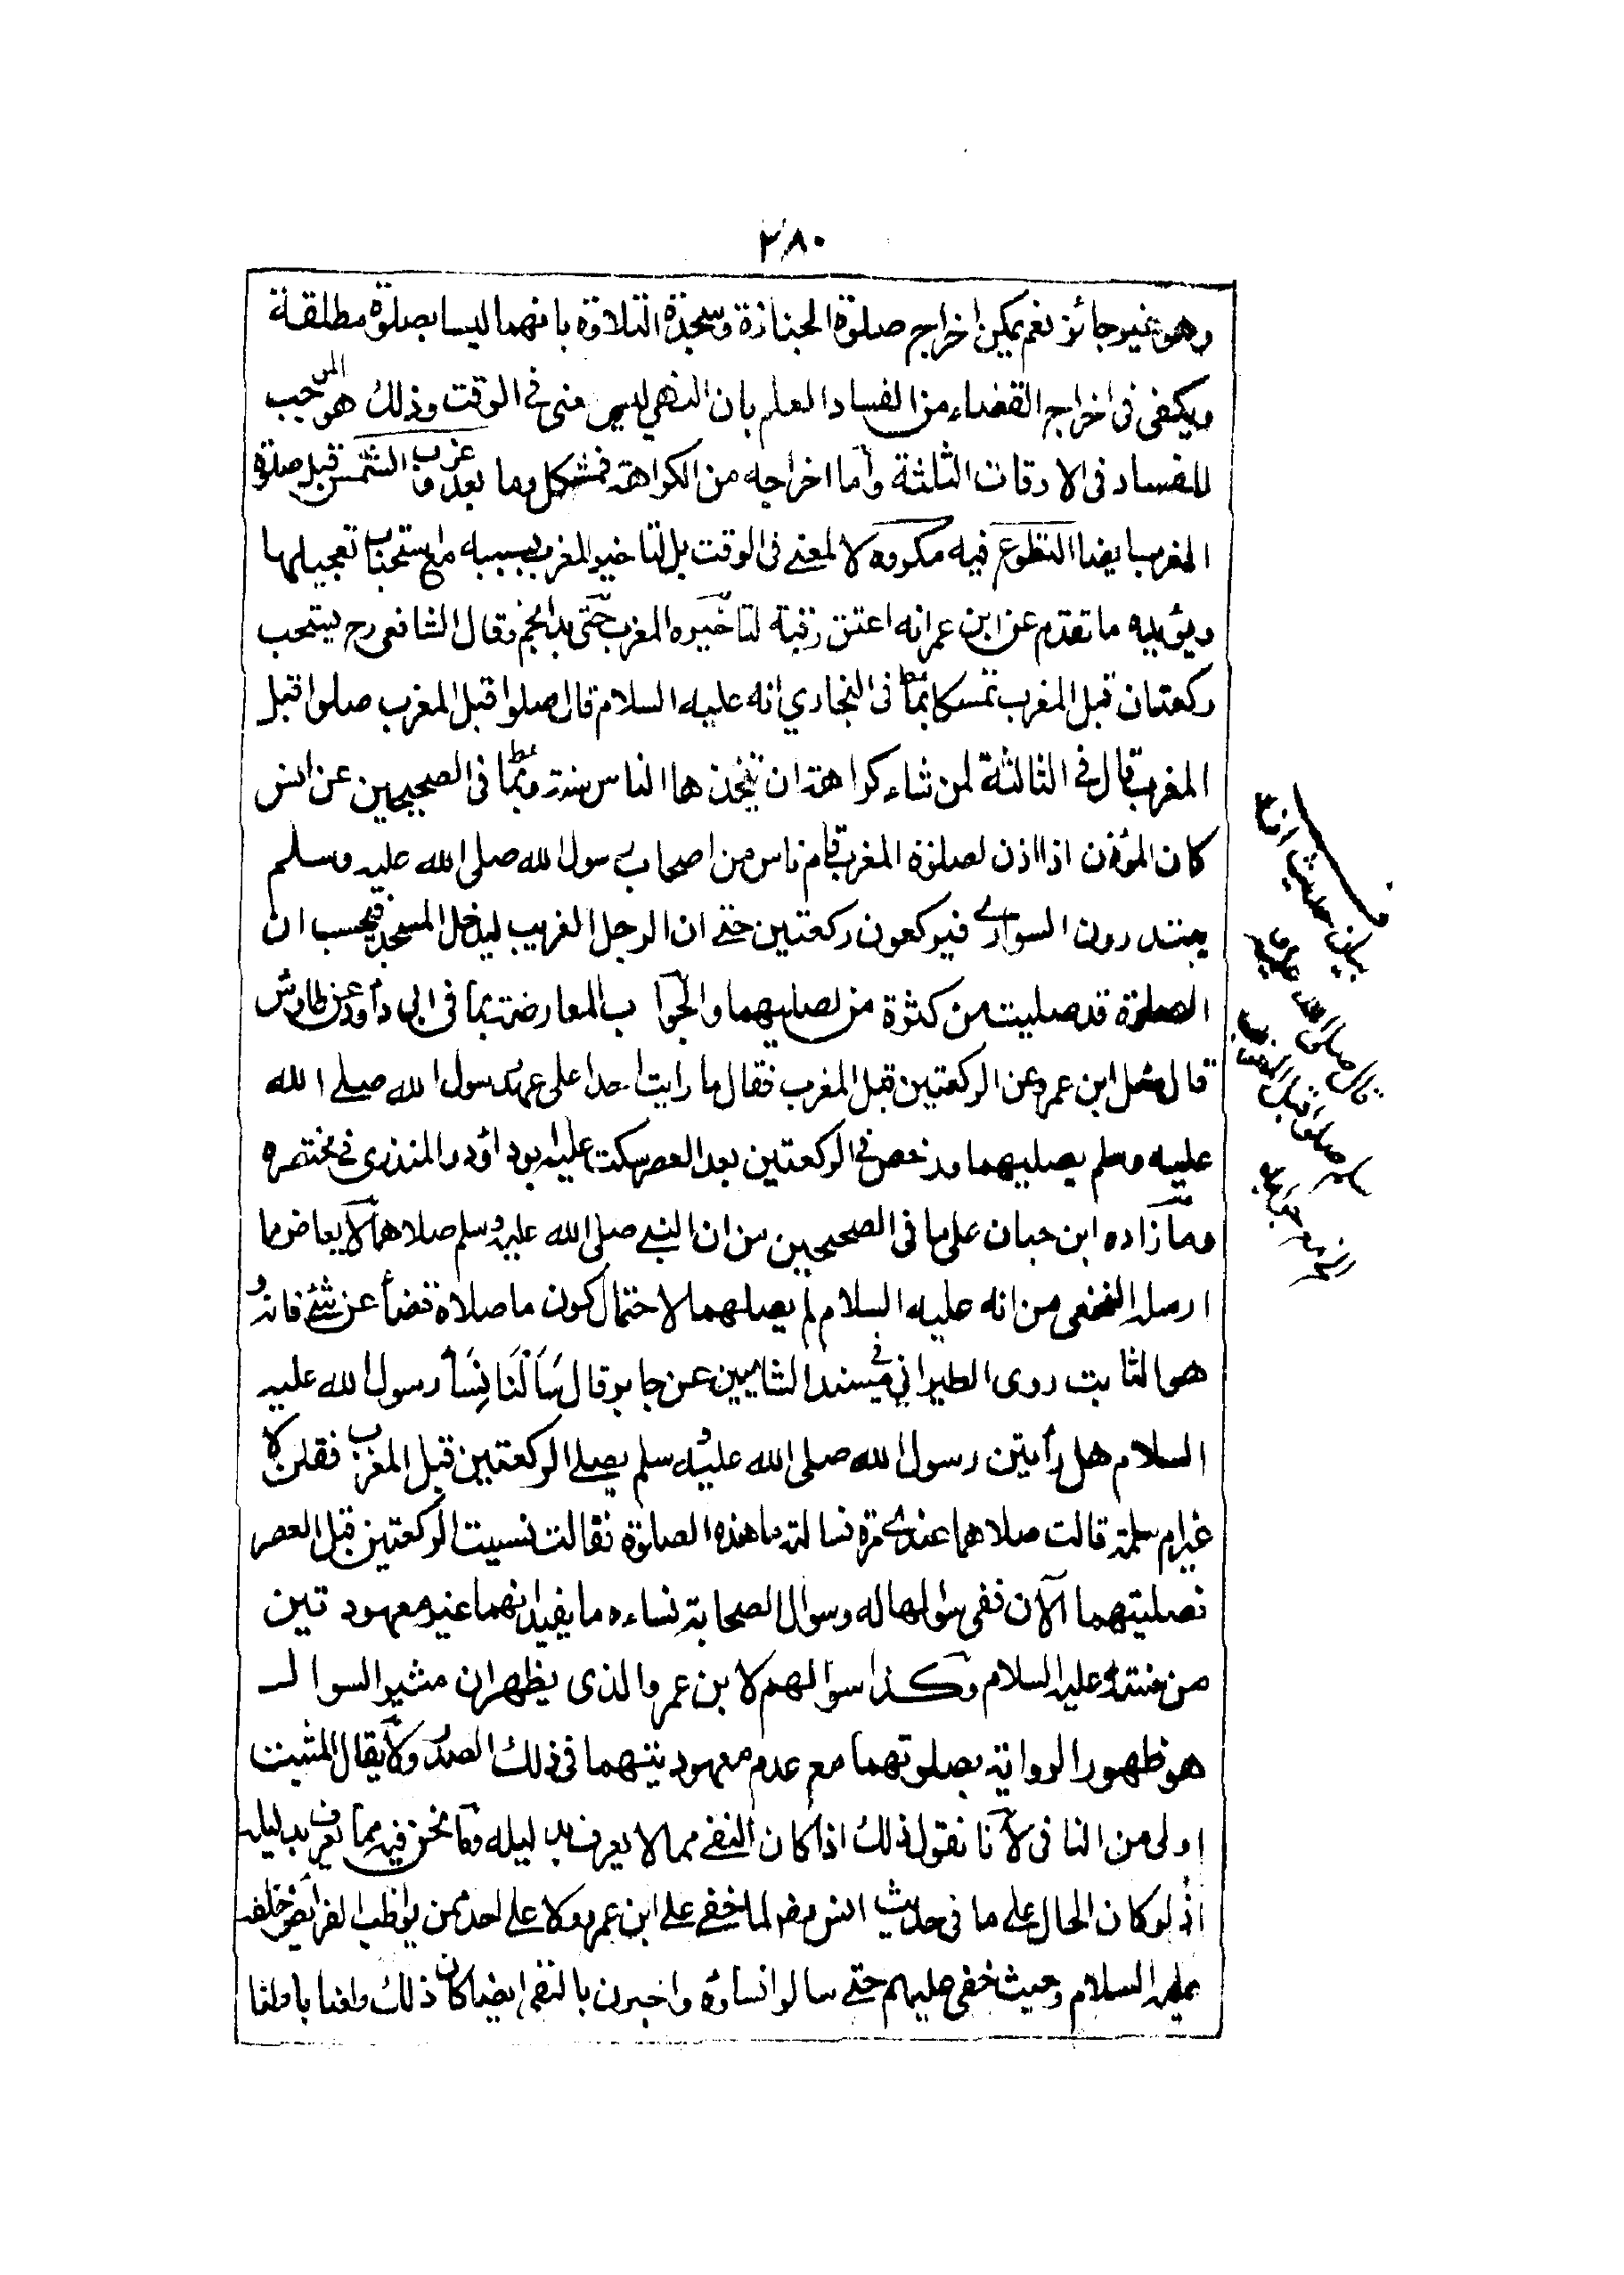 ٢٨٠
وهو غير جائز نعم يمكن اخراج صلوة الجنازة وسجدة التلاوة بانهما ليسا بصلوة مطلقة
ويكفى فى اخراج القضاء من الفساد العلم بان النهي ليس لمعنى فى الوقت وذلك هو الموجب
للفساد فى الاوقات الثلثة وأما اخراجه من الكراهة فمشكل وما بعد غروب الشمس قبل صلوة
المغرب ايضا التطوع فيه مكروه لا لمعنى فى الوقت بل لتاخير المغرب بسببه مع استحباب تعجيلها
ويؤيده ما تقدم عن ابن عمر انه اعتق رقبة لتاخيره المغرب حتى بدا نجم وقال الشافعى رح يستحب
ركعتان قبل المغرب تمسكا بما فى البخاري انه عليه السلام قال صلوا قبل المغرب صلوا قبل
المغرب قال فى الثالثة لمن شاء كراهة ان يتخذها الناس سنة وبما فى الصحيحين عن انس
كان المؤذن اذا اذن لصلوة المغرب قام ناس من اصحاب رسول الله صلى الله عليه وسلم
يبتدرون السوارى فيركعون ركعتين حتى ان الرجل الغريب ليدخل المسجد فيحسب ان
الصلوة قد صليت من كثرة من يصليهما والجواب بالمعارضة بما فى ابى داود عن طاوس
قال سئل ابن عمر عن الركعتين قبل المغرب فقال ما رايت احدا على عهد رسول الله صلى الله
عليه وسلم يصليهما ورخص فى الركعتين بعد العصر سكت عليه ابو داود والمنذرى فى مختصره
وما زاده ابن حبان على ما فى الصحيحين من ان النبى صلى الله عليه وسلم صلاهما لا يعارض ما
ارسله النخعى من انه عليه السلام لم يصلهما لاحتمال كون ما صلاه قضأ عن شئ فاته و
هو الثابت روى الطبرانى فى مسند الشاميين عن جابر قال سَاَلْنَا نِسَأَ رسول الله عليه
السلام هل رأيتن رسول الله صلى الله عليه وسلم يصلى الركعتين قبل المغرب فقلن لا
غير ام سلمة قالت صلاهما عندى مرة فسالته ما هذه الصلوة فقالت نسيت الركعتين قبل العصر
فصليتهما الآن ففى سؤالها له وسوال الصحابة نساءه ما يفيد انهما غير معهودتين
من عنده عليه السلام وكذا سوالهم لابن عمر والذى يظهر ان مثير السوال
هو ظهور الرواية بصلوتهما مع عدم معهوديتهما فى ذلك الصدر ولا يقال المثبت
اولى من النافى لأنا نقول ذلك اذا كان النفى مما لا يعرف بدليله وما نحن فيه مما يعرف بدليله
اذ لو كان الحال على ما فى حديث انس رض لما خفى على ابن عمر ولا على احد ممن يواظب الفرائض خلفه
عليه السلام وحيث خفى عليهم حتى سالوا نساؤه واخبرن بالنفى ايضا كان ذلك دافعا